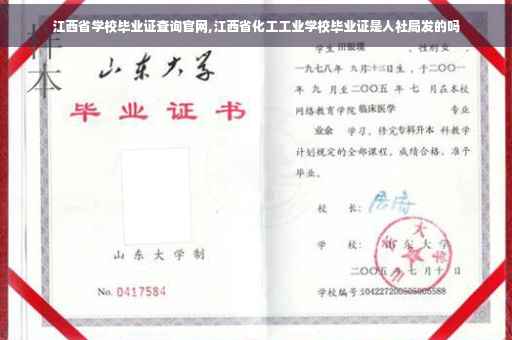 江西省学校毕业证查询官网,江西省化工工业学校毕业证是人社局发的吗
样本
山东大学
毕业证书
山东大学制
No. 0417584
学生 田 ，性别女，
一九七八年 九月十二日生，于二〇〇一
年 九 月至二〇〇五 年 七 月在本校
网络教育学院 临床医学 专业
业余 学习，修完专科升本 科教学
计划规定的全部课程，成绩合格，准予
毕业。
校 长：
学 校： 山东大学
二〇〇五 年 七 月 十 日
学校编号:104227200505005588